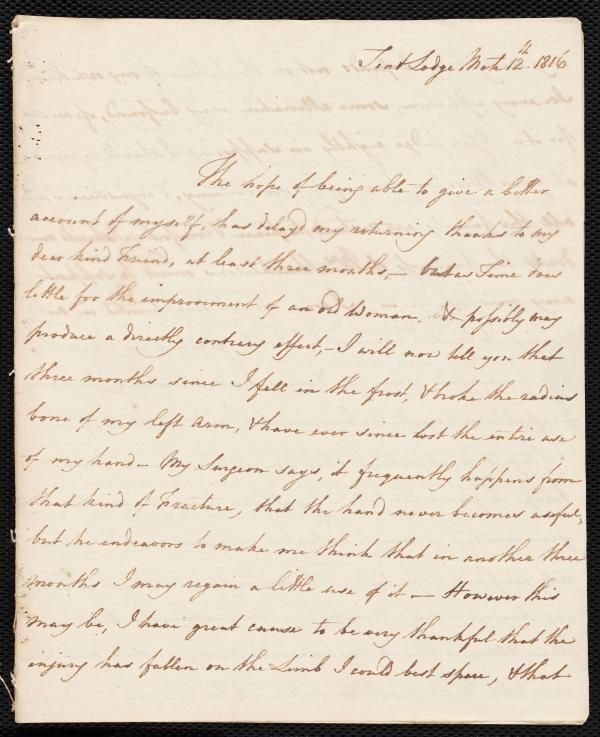 Tent Lodge Mch 12th 1816
The hope of being able to give a better
account of myself, has delay'd my returning thanks to my
dear kind Friend, at least three months,— but as Time does
little for the improvement of an old Woman, & possibly may
produce a directly contrary effect,— I will now tell you that
three months since I fell in the frost, & broke the radius
bone of my left arm, & have ever since lost the entire use
of my hand— My Surgeon says, it frequently happens from
that kind of Fracture, that the hand never becomes useful,
but he endeavors to make me think that in another three
months I may regain a little use of it— However this
may be, I have great cause to be very thankful that the
injury has fallen on the Limb I could best spare, & that